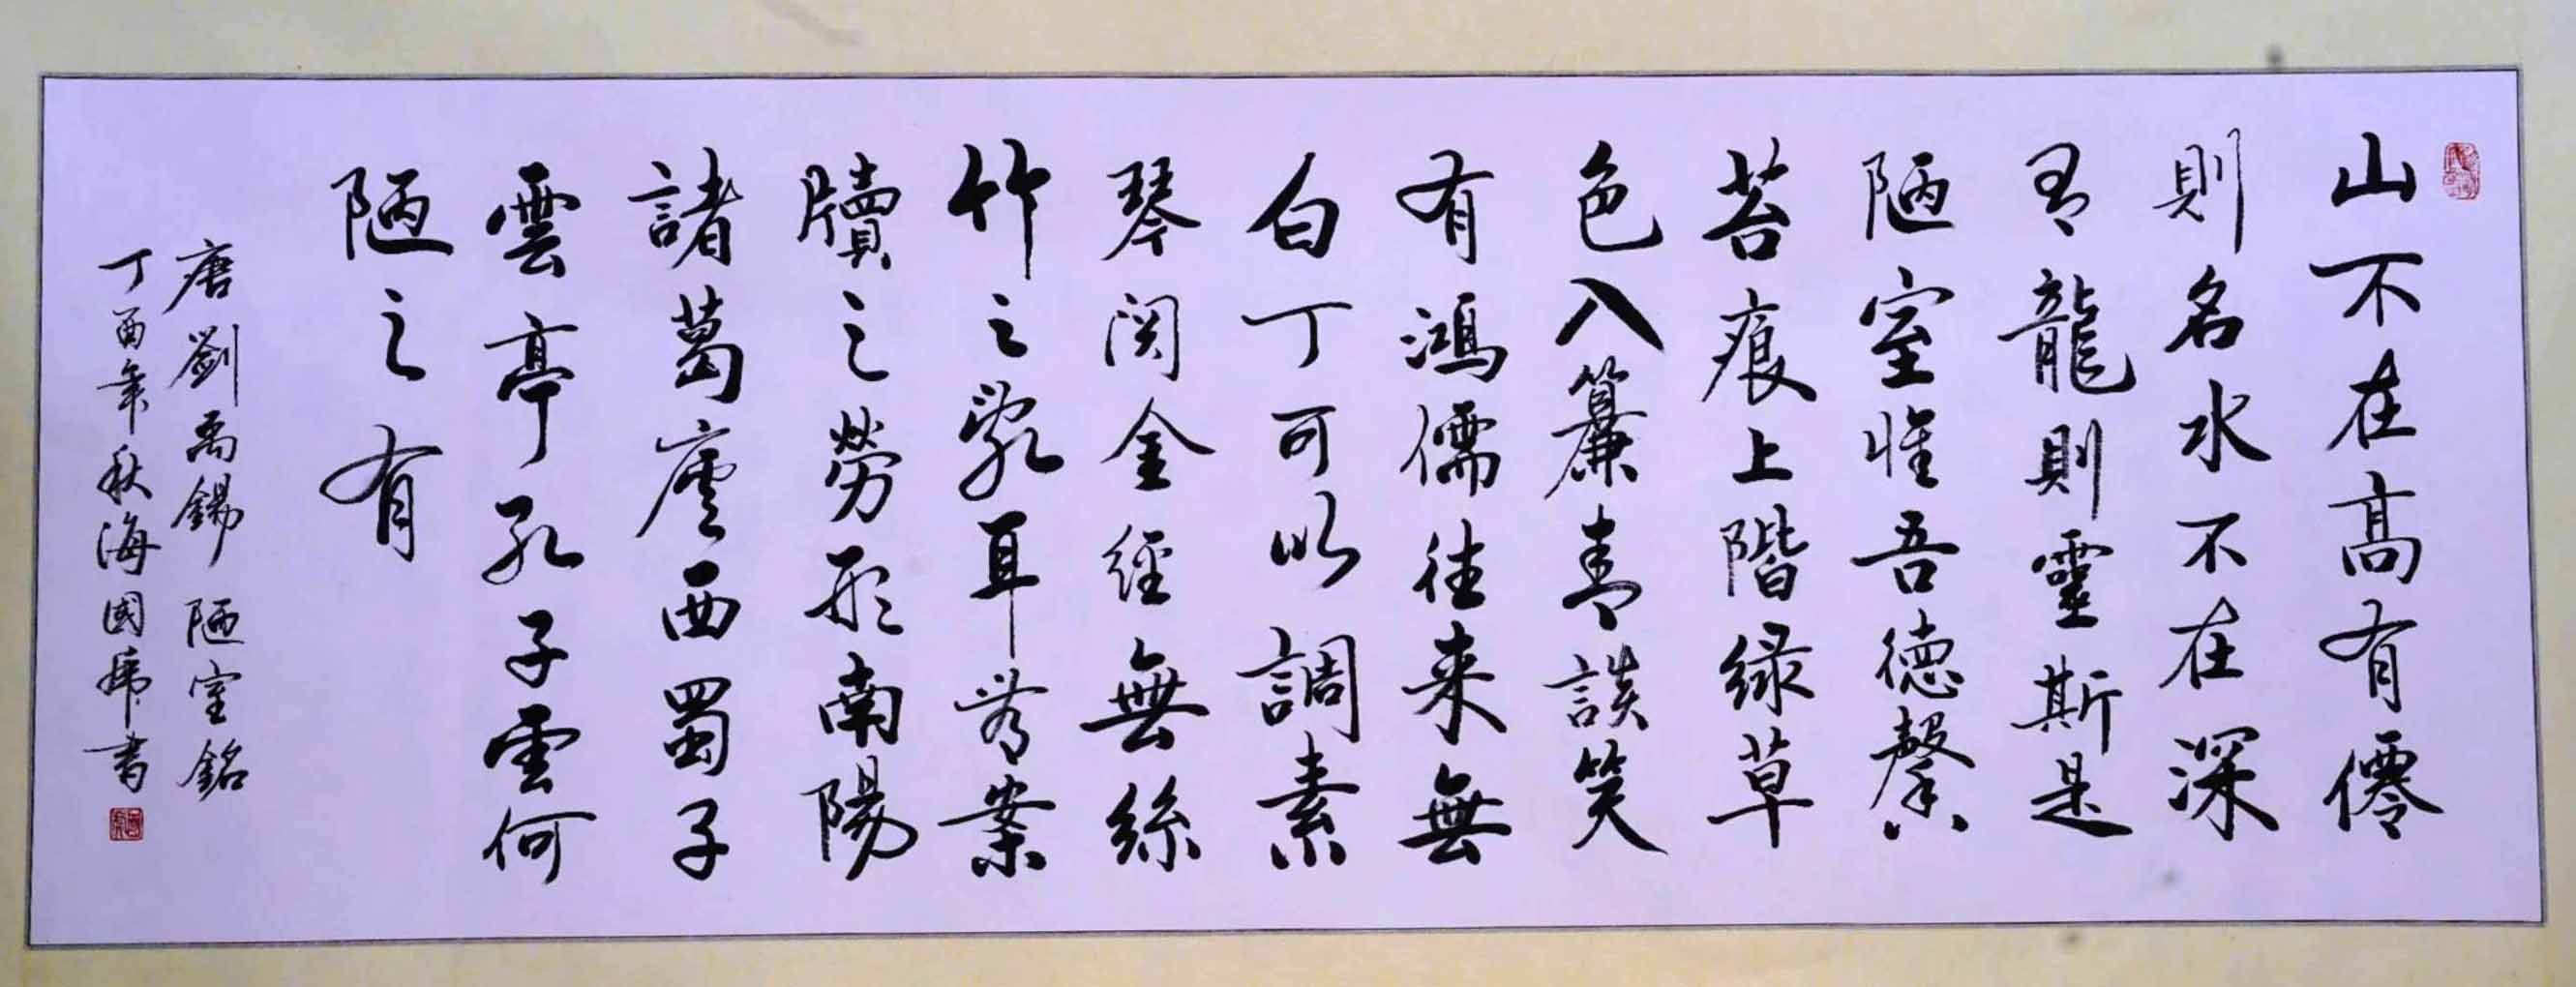 山不在高有僊
則名水不在深
有龍則靈斯是
陋室惟吾德馨
苔痕上階緑草
色入簾青談笑
有鴻儒往来無
白丁可以調素
琴閱金經無絲
竹之亂耳無案
牘之勞形南陽
諸葛廬西蜀子
雲亭孔子雲何
陋之有
唐劉禹錫陋室銘
丁酉年秋海國書